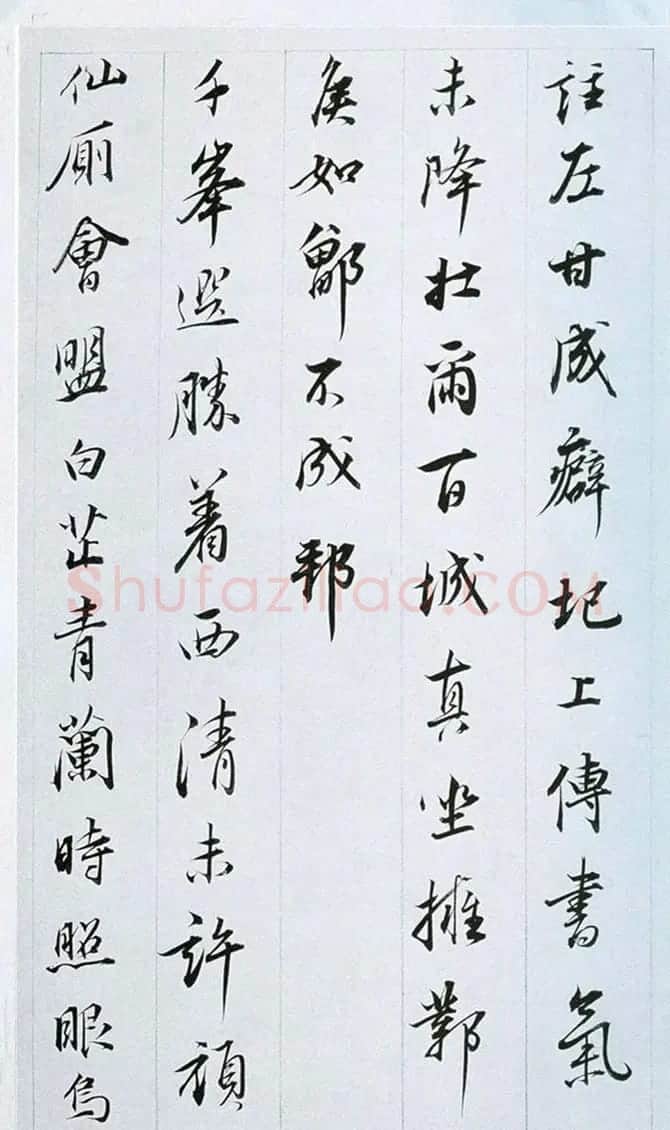 註左甘成癖圯上傳書氣
未降壯爾百城真坐擁鄴
侯如鄒不成邦
千峯選勝着西清未許頑
仙廁會盟白芷青蘭時照眼烏
Shufaziliao.com